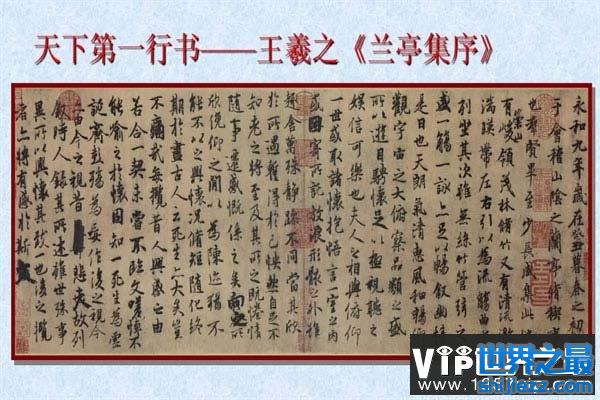 天下第一行书——王羲之《兰亭集序》
永和九年歲在癸丑暮春之初
于會稽山陰之蘭亭脩稧事
也群賢畢至少長咸集此地
有崇山峻領茂林脩竹又有清流激
湍暎帶左右引以為流觴曲
列坐其次雖無絲竹管弦之
盛一觴一詠亦足以暢敘幽情
是日也天朗氣清惠風和暢仰
觀宇宙之大俯察品類之盛
所以遊目騁懷足以極視聽之
娛信可樂也夫人之相與俯仰
一世或取諸懷抱悟言一室之內
或因寄所託放浪形骸之外雖
趣舍萬殊靜躁不同當其欣
於所遇蹔得於己怏然自足不
知老之將至及其所之既惓情
隨事遷感慨係之矣向之所
欣俛仰之間以為陳迹猶不
能不以之興懷況脩短隨化終
期於盡古人云死生亦大矣豈
不痛哉每攬昔人興感之由
若合一契未嘗不臨文嗟悼不
能喻之於懷固知一死生為虛
誕齊彭殤為妄作後之視今
亦由今之視昔悲夫故列
敘時人錄其所述雖世殊事
異所以興懷其致一也後之攬
者亦將有感於斯文
VIP世界之最
shijiezz.com